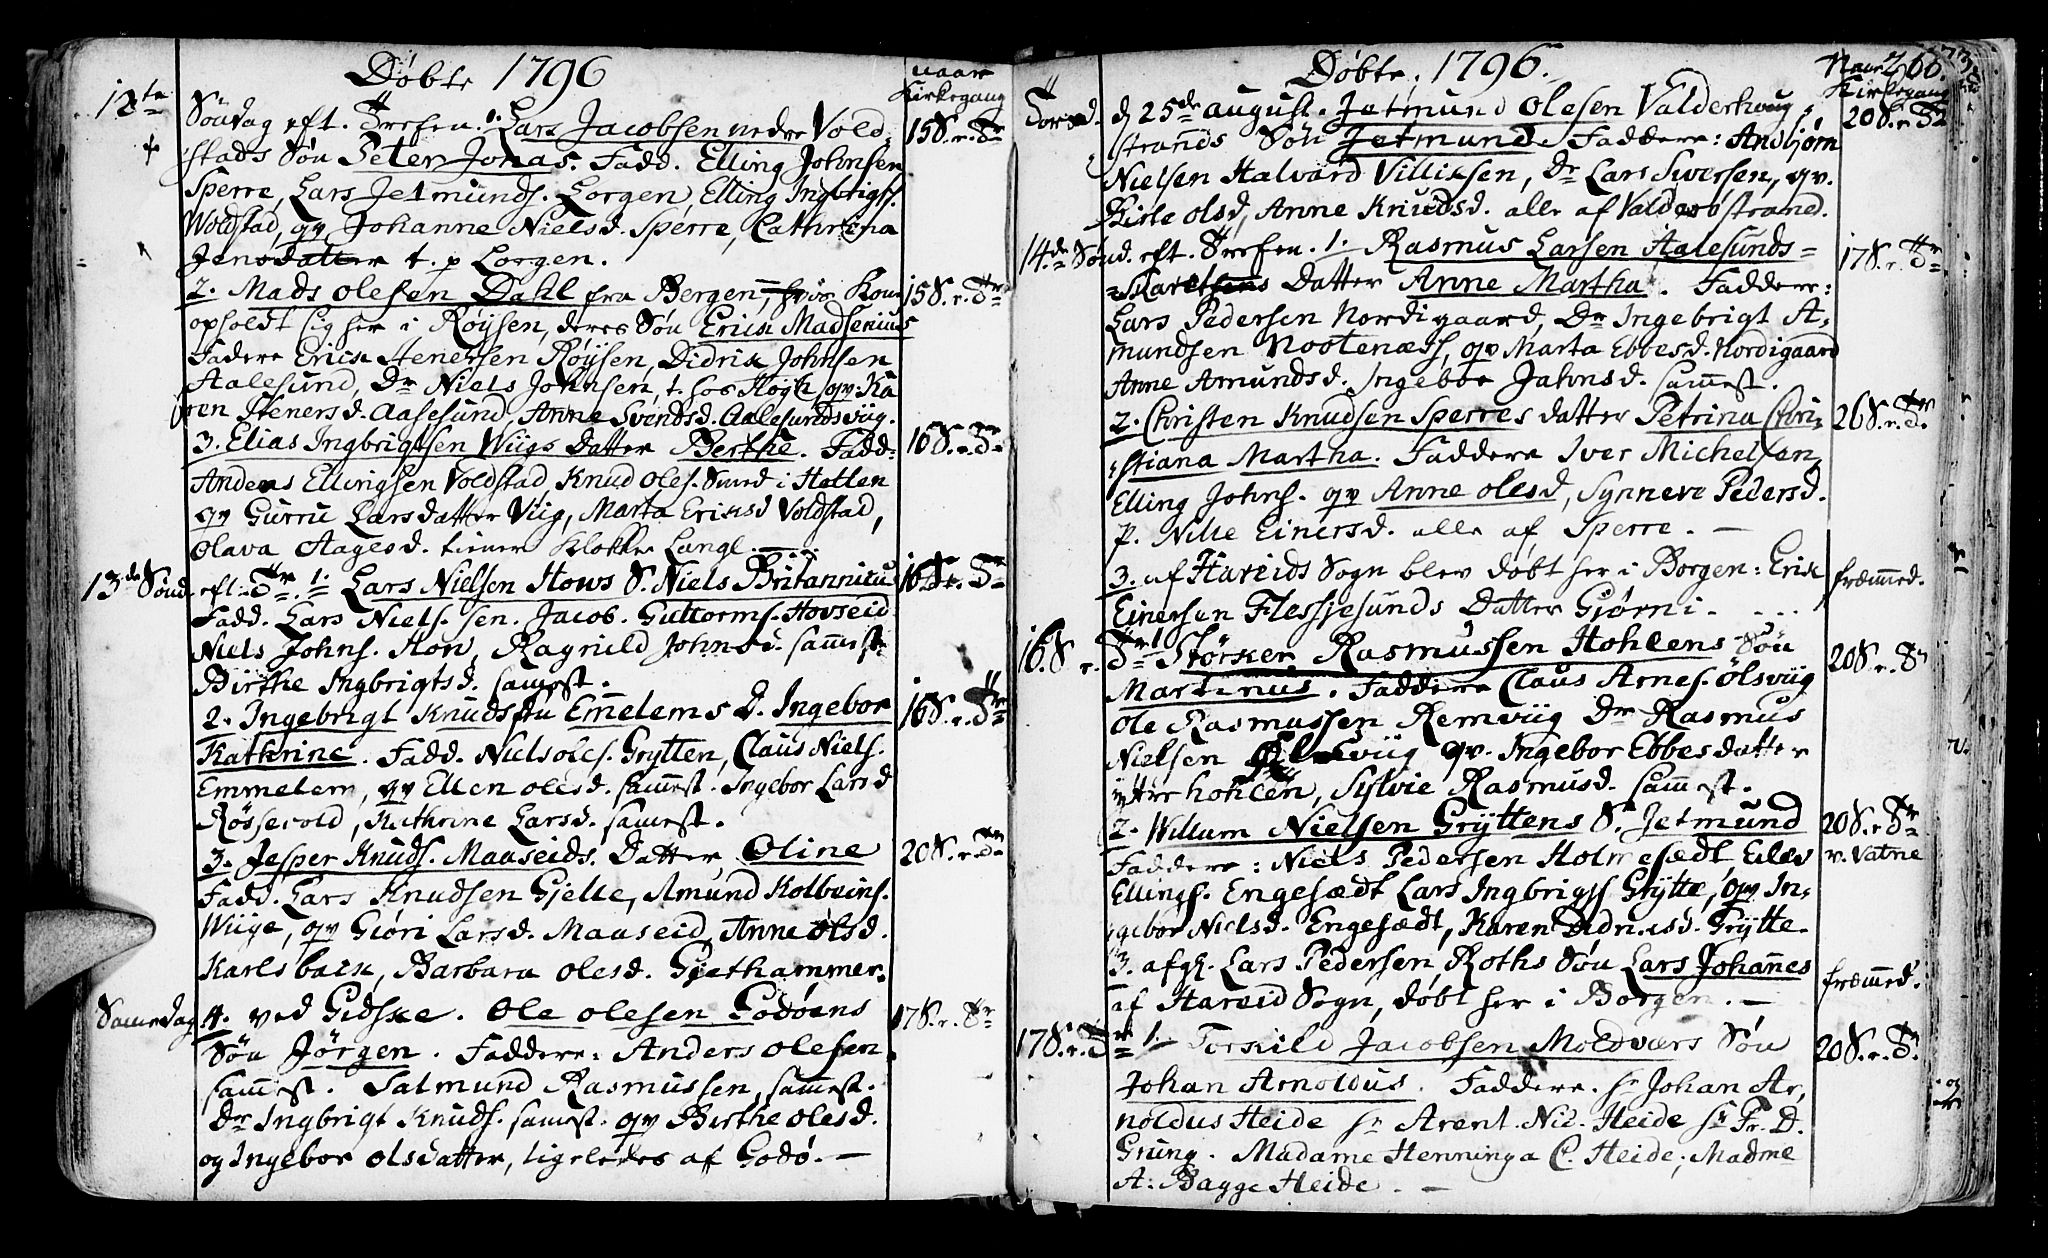 Döbte 1796
naar
Kirkegang
12te
Söndag eft. Trefen. 1. Lars Jacobsen nedre Vold
15 S. r. Tr
stads Sön Peter Jonas. Fadd. Elling Johnsen
Sperre, Lars Jetmunds. Lorgen, Elling Ingbrigts.
Woldstad, qv Johanne Nielsd. Sperre, Cathrina
Jensdatter t. p Lorgen.
2. Mads olesen Dahl fra Bergen, hvis Kone
15 S. r. Tr
opholdt sig her i Röysen, deres Sön Erick Madsenius
Faddere Erick Stenersen Röysen, Didrik Johnsen
Aalesund, Dr Niels Johnsen, t. hos Høgh qv: Ka
ren Stenersd. Aalesund, Anne Svendsd. Aalesundsvag.
3. Elias Ingbrigtsen Wiigs Datter Berthe. Fadd:
16 S. r. Tr
Anders Ellingsen Voldstad Knud oles. Sund i Hatlen
qv Gurru Larsdatter Viig, Marta Ericsd Voldstad,
Olava Aagesd. tiener Klokker Langl.
13de Sönd. eft. Tr. 1. Lars Nielsen Hows S. Niels Britannicus
16 S. r. Tr
Fadd. Lars Niels. sen. Jacob. Guttorms. Hovseid
Niels Johns. How, Ragnild Johnsd. sammest.
Birthe Ingbrigtsd. samest.
2. Ingebrigt Knudsen Emmelems D. Ingebor
16 S. r. Tr
Kathrine. Fadd. Niels oles. Grytten, Claus Niels.
Emmelem, qv Ellen olesd. sammest. Ingebor Larsd
Rössevold, Kathrine Larsd. samest.
3. Jesper Knuds. Maaseids. Datter Oline
20 S. r. Tr
Fadd. Lars Knudsen Gjelle, Amund Kolbeins.
Wiige, qv Giöri Larsd. Maaseid, Anne olsd.
Karlsback, Barbara olesd. Gjethammer.
Sammedag 4. ved Gidske. Ole olesen Godöens
17 S. r. Tr
Sön Jörgen. Faddere: Anders olesen
sammest. Salmund Rasmussen, sammest.
Dr Ingbrigt Knuds. sammest. qv Birthe olesd.
og Ingebor olsdatter, ligeledes af Godö.
Döbte, 1796.
Naar 266.
Kirkegang
Torsd. d 25de august. Jetmund Olesen Valderhoug
20 S. r. Tr
strands Sön Jetmund. Faddere: Andbjörn
Nielsen Halvard Villiksen, Dr Lars Siversen, qv.
Birte olsd, Anne Knudsd. alle af Valderöstrand.
14de Sönd. eft. Trefen. 1. Rasmus Larsen Aalesunds-
17 S. r. Tr
Datter Anne Martha. Faddere:
Lars Pedersen Nordigaard, Dr Ingebrigt A-
mundsen Nostenæss, qv Marta Ebbesd. Nordigaard
Anne Amundsd. Ingebor Jahnsd. samest.
2. Christen Knudsen Sperres datter Petrina Chri-
26 S. r. Tr
stiana Martha. Faddere Iver Michelsen,
Elling Johns. qv Anne olesd, Synneve Pedersd.
P. Nille Einersd. alle af Sperre.
3. af Hareids Sogn blev döbt her i Borgen: Erik
fræmmed.
Einersen Flessjesunds Datter Gjörni.
16. S r. Tr 1. Störker Rasmussen Hohlens Sön
20 S. r. Tr
Martinus. Faddere Claus Arnes. Ölsviig
Ole Rasmussen Remviig Dr Rasmus
Nielsen qv. Ingebor Ebbesdatter
ytter hohlen, Sylvie Rasmusd. sammest.
2. Willum Nielsen Gryttens S. Jetmund
20 S. r Tr
Faddere: Niels Pedersen Holmesædt Eilev
v. Vatne
Ellings. Engesædt Lars Ingbrigts Grytte, qv In-
gebor Nielsd. Engesædt, Karen Didricsd. Grytte.
3. afg. Lars Pedersen, Roths Sön Lars Johannes
fræmmed.
af Hareid Sogn, döbt her i Borgen.
17 S. r. Tr 1. Torkild Jacobsen Moldværs Sön
20 S. r. Tr
Johan Arnoldus. Faddere. sr Johan Ar-
noldus Heide sr Arent. Nic. Heide sr Fr. D.
Grung. Madame Henninga C. Heide; Madme
A: Bagge Heide.